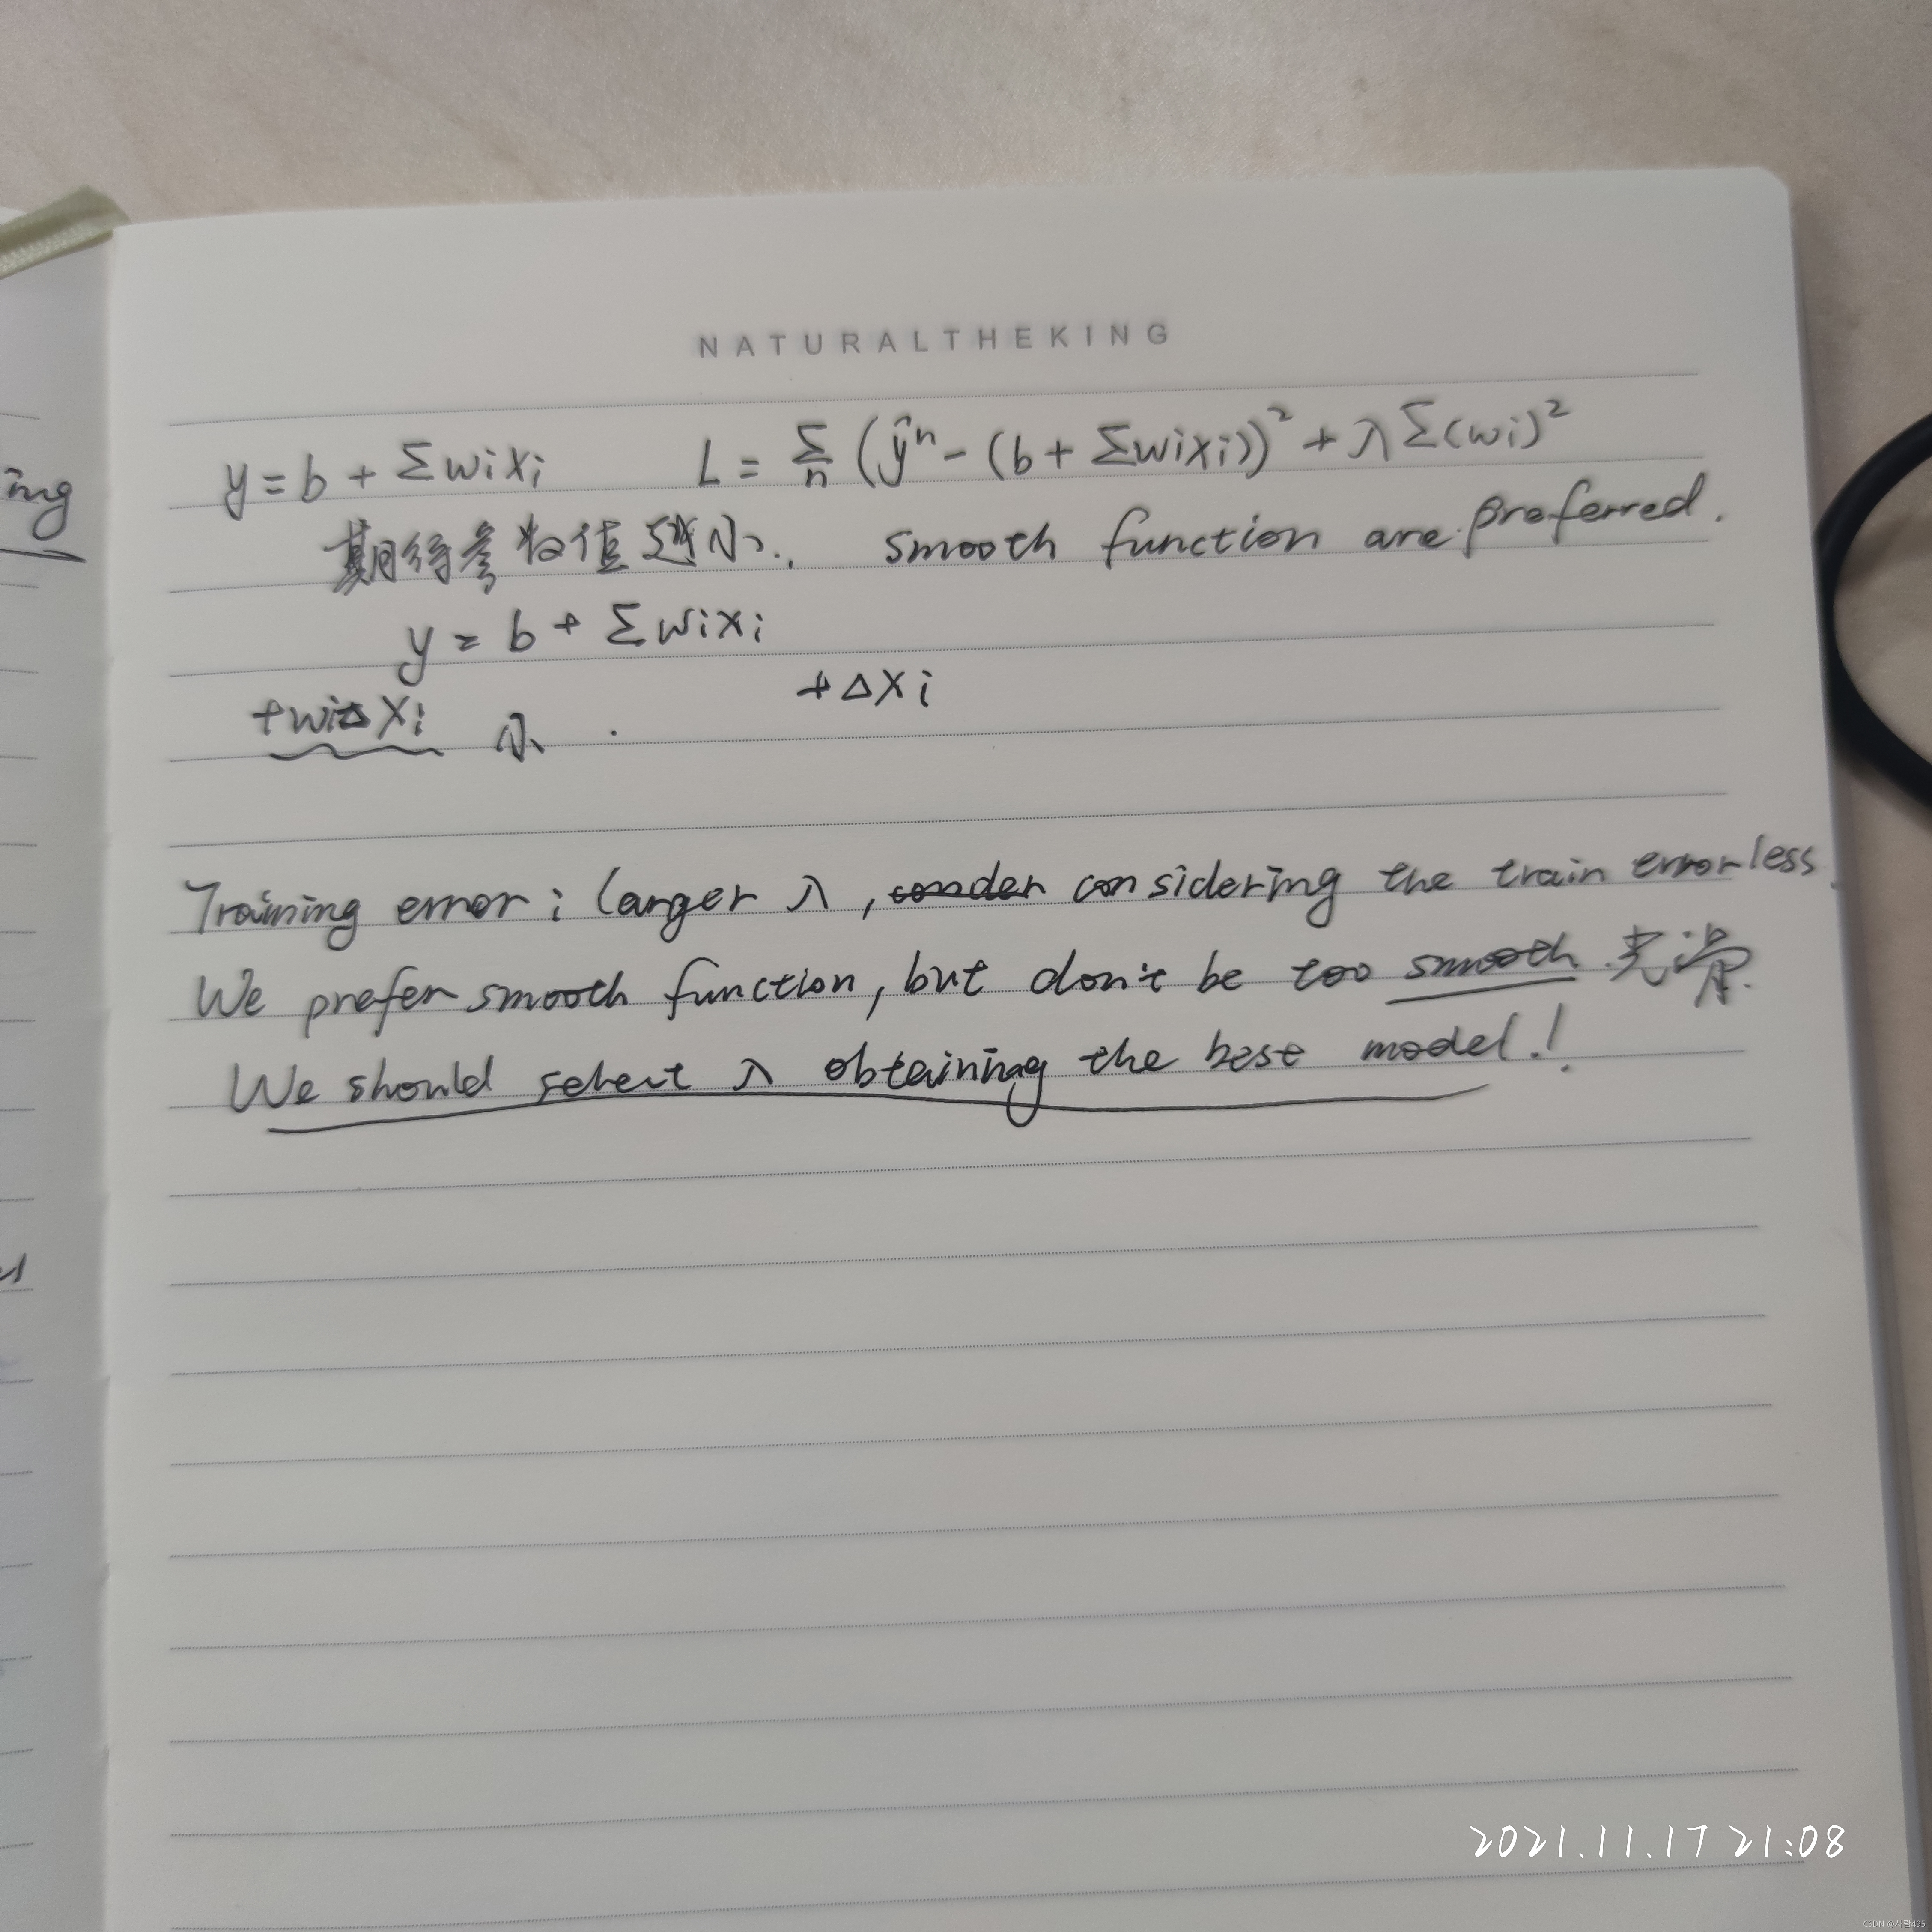 NATURALTHEKING
ing
y = b + Σwixi L = Σn (ŷⁿ - (b + Σwixi))² + λΣ(wi)²
期待参数值越小. smooth function are preferred.
y = b + Σwixi
+wiΔxi 小. +Δxi
Training error: larger λ, considering the train error less.
We prefer smooth function, but don't be too smooth. 光滑.
We should select λ obtaining the best model!
2021.11.17 21:08